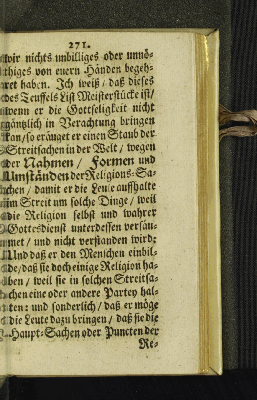 271.
wir nichts unbilliges oder unnö-
thiges von euern Händen begeh-
ret haben. Ich weiß / daß dieses
des Teuffels List Meisterstücke ist /
wenn er die Gottseligkeit nicht
gäntzlich in Verachtung bringen
kan / so eräuget er einen Staub der
Streitsachen in der Welt / wegen
der Nahmen / Formen und
Umständen der Religions-Sa-
chen / damit er die Leute auffhalte
im Streit um solche Dinge / weil
die Religion selbst und wahrer
Gottesdienst unterdessen versäu-
met / und nicht verstanden wird:
Und daß er den Menschen einbil-
de / daß sie doch einige Religion ha-
ben / weil sie in solchen Streitsa-
chen eine oder andere Partey hal-
ten: und sonderlich / daß er möge
die Leute dazu bringen / daß sie die
Haupt-Sachen oder Puncten der
Re-